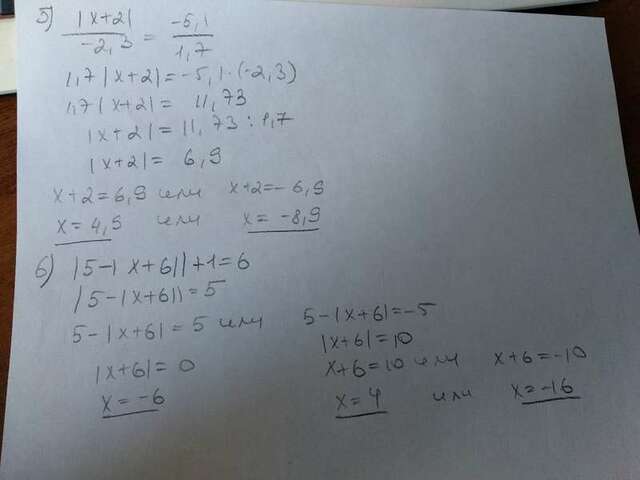 5) |x+2| / -2,3 = -5,1 / 1,7
1,7|x+2|=-5,1·(-2,3)
1,7|x+2|= 11,73
|x+2|=11,73:1,7
|x+2|= 6,9
x+2=6,9 или x+2=-6,9
x=4,9 или x= -8,9
6) |5-|x+6||+1=6
|5-|x+6||=5
5-|x+6|=5 или 5-|x+6|=-5
|x+6|=0 |x+6|=10
x=-6 x+6=10 или x+6=-10
x=4 или x=-16